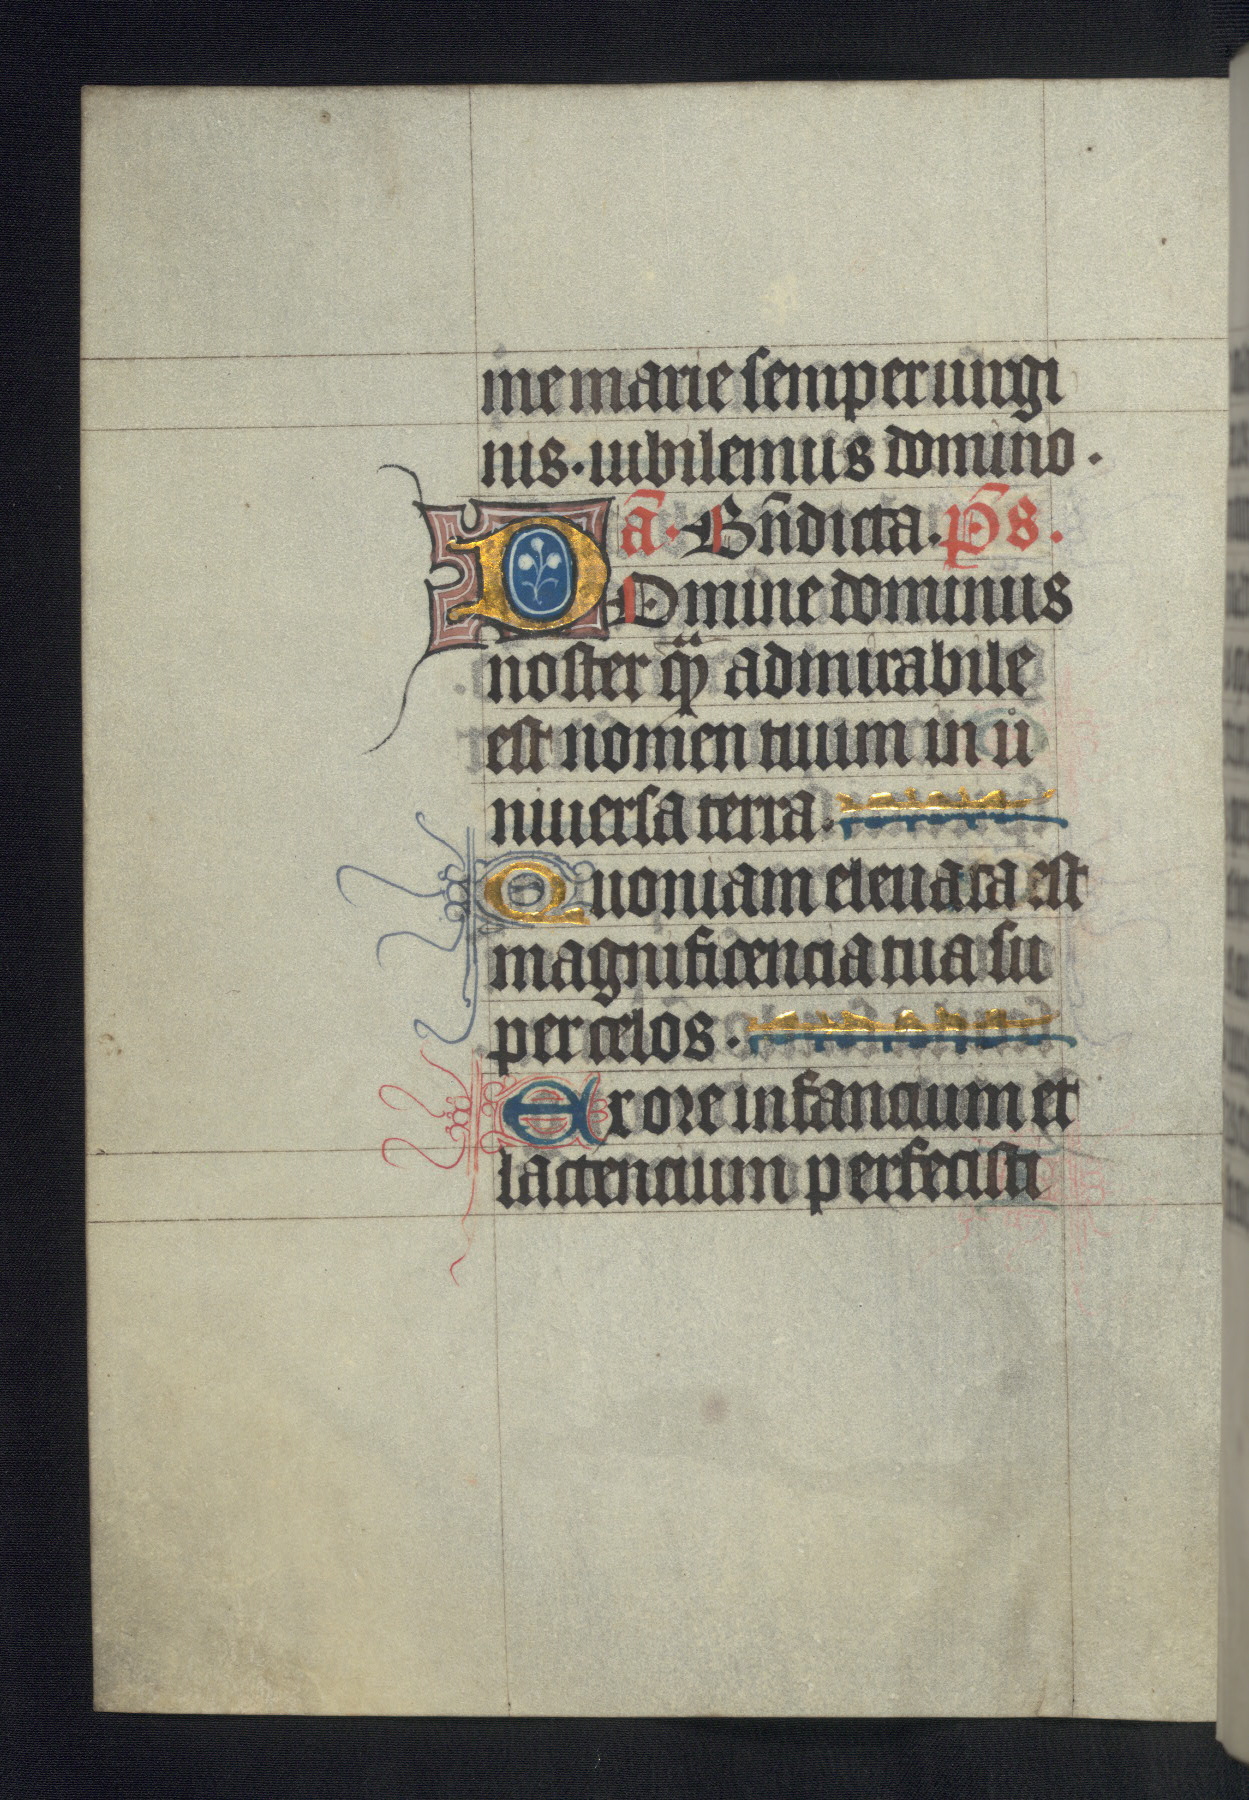 me marie semper uirgi
nis. iubilemus domino.
ā. Bn̄dicta. p̄s.
DOmine dominus
noster qm̄ admirabile
est nomen tuum in u
niuersa terra.
Quoniam eleuata est
magnificencia tua su
per celos.
Ex ore infancium et
lactencium perfecisti